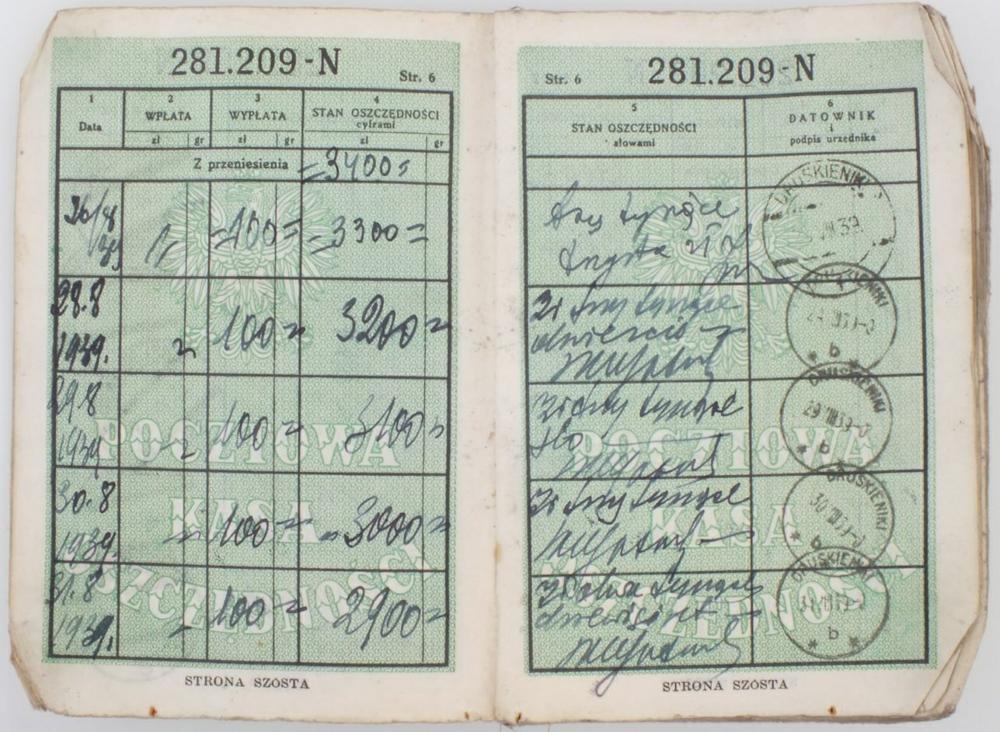 281.209-N
Str. 6
1 2 3 4
Data WPŁATA WYPŁATA STAN OSZCZĘDNOŚCI
cyframi
zł gr zł gr zł gr
Z przeniesienia =3400=
26/8 =100= =3300=
39
28.8 100= 3200=
1939.
29.8 100= 3100=
1939
30.8 100= 3000=
1939.
31.8 100= 2900=
1939.
POCZTOWA
KASA
OSZCZĘDNOŚCI
STRONA SZÓSTA
Str. 6
281.209-N
5 6
STAN OSZCZĘDNOŚCI DATOWNIK
słowami i
podpis urzędnika
trzy tysiące DRUSKIENIKI
trzysta zł VIII 39
Zł trzy tysiące DRUSKIENIKI
dwieście b
Zł trzy tysiące DRUSKIENIKI
sto 29 VIII 39
b
Zł trzy tysiące DRUSKIENIKI
30 VIII 39
b
Zł dwa tysiące DRUSKIENIKI
dziewięćset 31 VIII 39
b
POCZTOWA
KASA
STRONA SZÓSTA